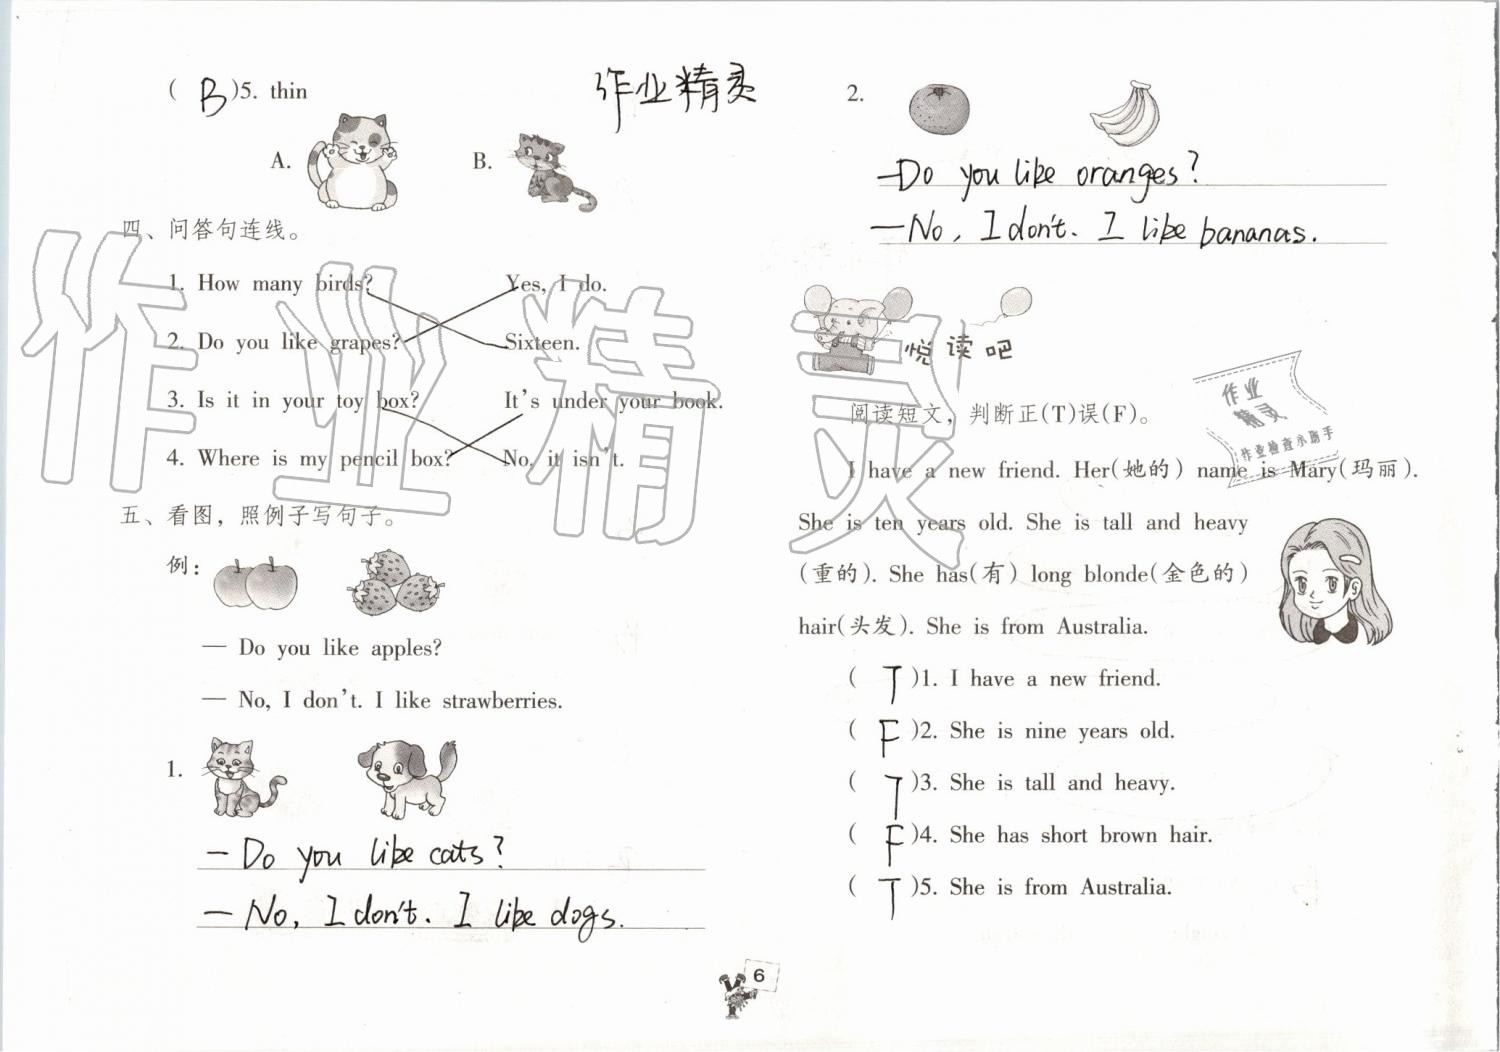 ( B )5. thin
作业精灵
A.
B.
四、问答句连线。
1. How many birds?
Yes, I do.
2. Do you like grapes?
Sixteen.
3. Is it in your toy box?
It's under your book.
4. Where is my pencil box?
No, it isn't.
五、看图，照例子写句子。
例：
— Do you like apples?
— No, I don't. I like strawberries.
1.
— Do you like cats?
— No, I don't. I like dogs.
2.
— Do you like oranges?
— No, I don't. I like bananas.
悦读吧
阅读短文，判断正(T)误(F)。
I have a new friend. Her(她的) name is Mary(玛丽).
She is ten years old. She is tall and heavy
(重的). She has(有) long blonde(金色的)
hair(头发). She is from Australia.
( T )1. I have a new friend.
( F )2. She is nine years old.
( T )3. She is tall and heavy.
( F )4. She has short brown hair.
( T )5. She is from Australia.
6
作业精灵
作业
精灵
作业检查小助手